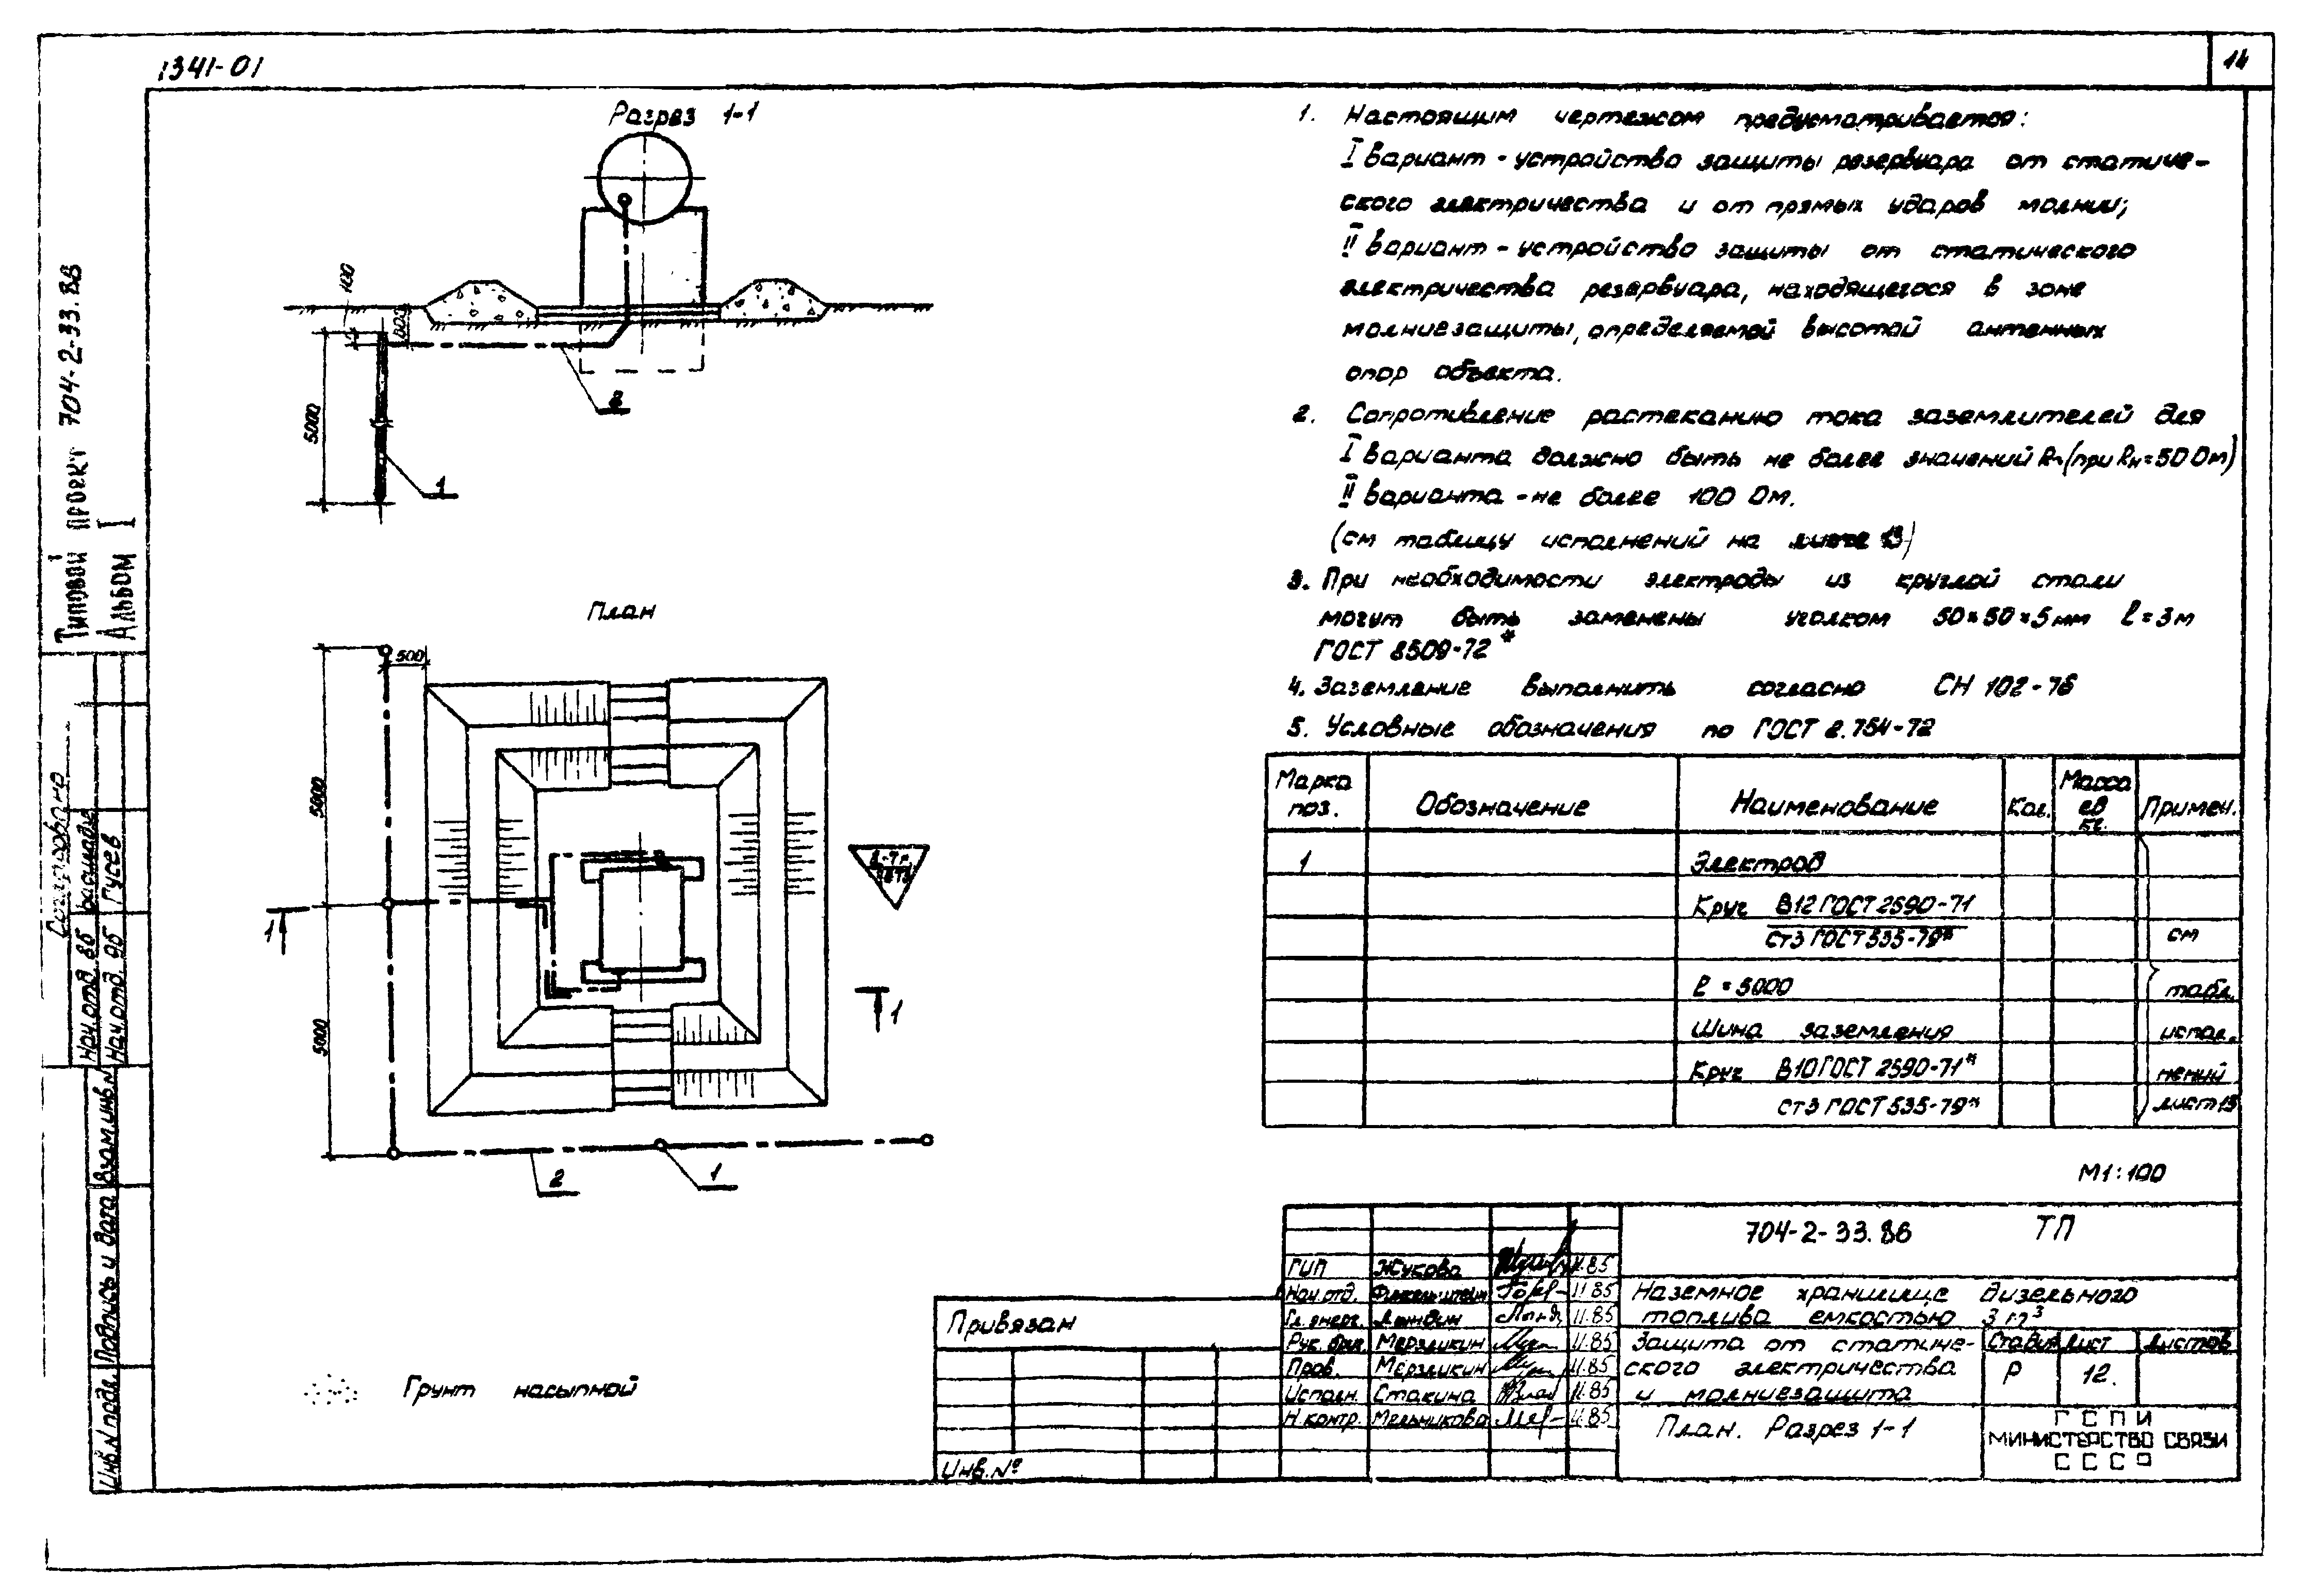 1341-01
14
Типовой проект 704-2-33.86
Альбом I
Согласовано
Нач.отд. 8б
Нач.отд. 9б Гусев
Взам.инв.N
Подпись и дата
Инв.N подл.
Разрез 1-1
100
5000
2
1
План
500
5000
5000
1
1
2
1
Грунт насыпной
1. Настоящим чертежом предусматривается:
I вариант - устройство защиты резервуара от статиче-
ского электричества и от прямых ударов молнии;
II вариант - устройство защиты от статического
электричества резервуара, находящегося в зоне
молниезащиты, определяемой высотой антенных
опор объекта.
2. Сопротивление растеканию тока заземлителей для
I варианта должно быть не более значений Rп (при Rн=50 Ом)
II варианта - не более 100 Ом.
(см таблицу исполнений на листе 13)
3. При необходимости электроды из круглой стали
могут быть заменены уголком 50×50×5мм l=3м
ГОСТ 8509-72*
4. Заземление выполнить согласно СН 102-76
5. Условные обозначения по ГОСТ 2.754-72
Марка поз. Обозначение Наименование Кол. Масса ед кг. Примеч.
1 Электрод
Круг В12 ГОСТ 2590-71
Ст3 ГОСТ 535-79* см
l = 5000 табл.
Шина заземления испол.
Круг В10 ГОСТ 2590-71* нений
Ст3 ГОСТ 535-79* лист 13
М1:100
704-2-33.86 ТП
ГИП Жукова 11.85
Нач.отд. Финкельштейн 11.85
Гл.энерг. Лондин 11.85
Рук.бриг. Мерзликин 11.85
Пров. Мерзликин 11.85
Исполн. Стакина 11.85
Н.контр. Мельникова 11.85
Наземное хранилище дизельного
топлива емкостью 3 м³
Защита от статиче-
ского электричества
и молниезащита
Стадия Лист Листов
Р 12.
План. Разрез 1-1
ГСПИ
МИНИСТЕРСТВО СВЯЗИ
СССР
Привязан
Инв.№